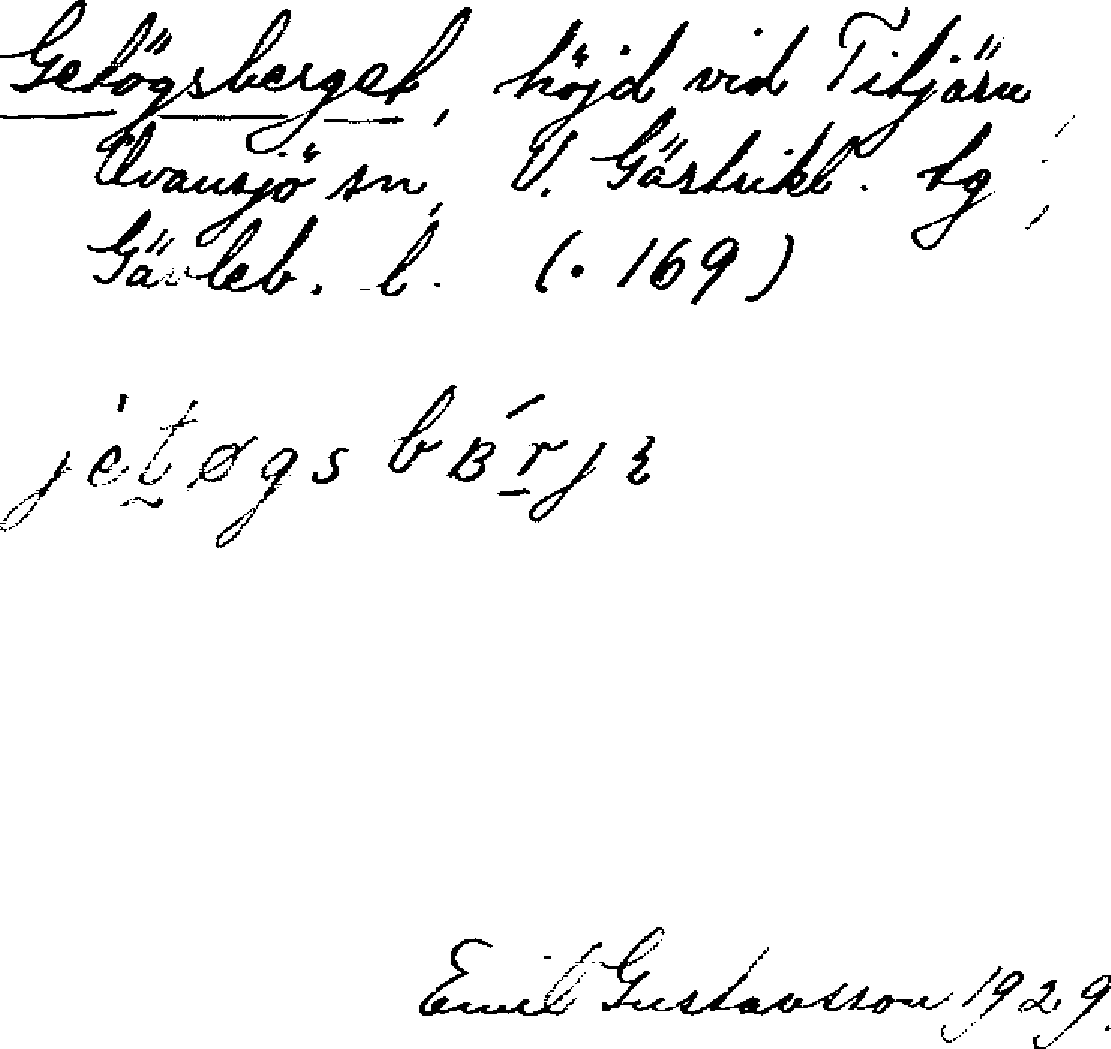 Getögsberget, höjd vid Titjärn,
Ovansjö sn, V. Gästrikl. tg,
Gävleb. l. (. 169)
jètøgs bʙ́rjɛ
Emil Gustavsson 1929.